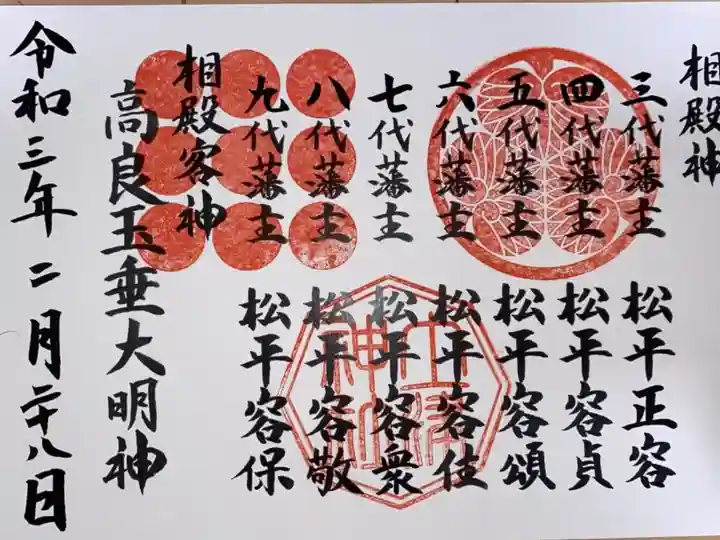 相殿神
三代藩主 松平正容
四代藩主 松平容貞
五代藩主 松平容頌
六代藩主 松平容住
七代藩主 松平容衆
八代藩主 松平容敬
九代藩主 松平容保
相殿客神
高良玉垂大明神
令和三年二月二十八日